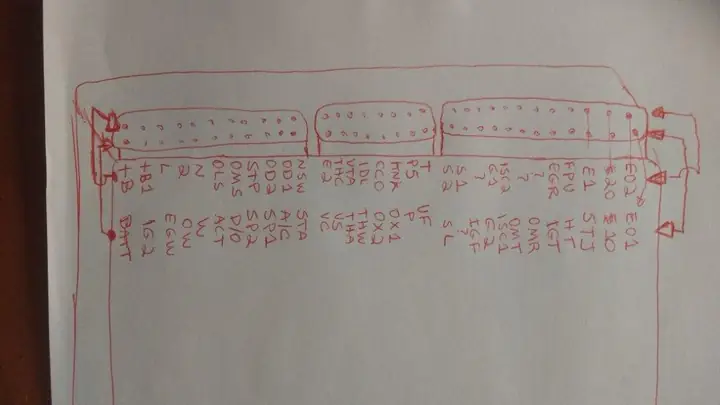 E02 E01
E20 E20
E1 STJ
FPU HT
EGR IGT
? OMR
? OMT
ISC2 ISC1
G1 G2
IGF
S1 ?
S2 SL
T VF
PS P
HNK OX1
CCO OX2
IDL THW
VTA THA
THG VS
E2 VC
NSW STA
OD1 A/C
OD2 SP1
STP SP2
OMS D/O
OLS ACT
N W
2 OW
L EGW
+B1 IG2
+B BATT